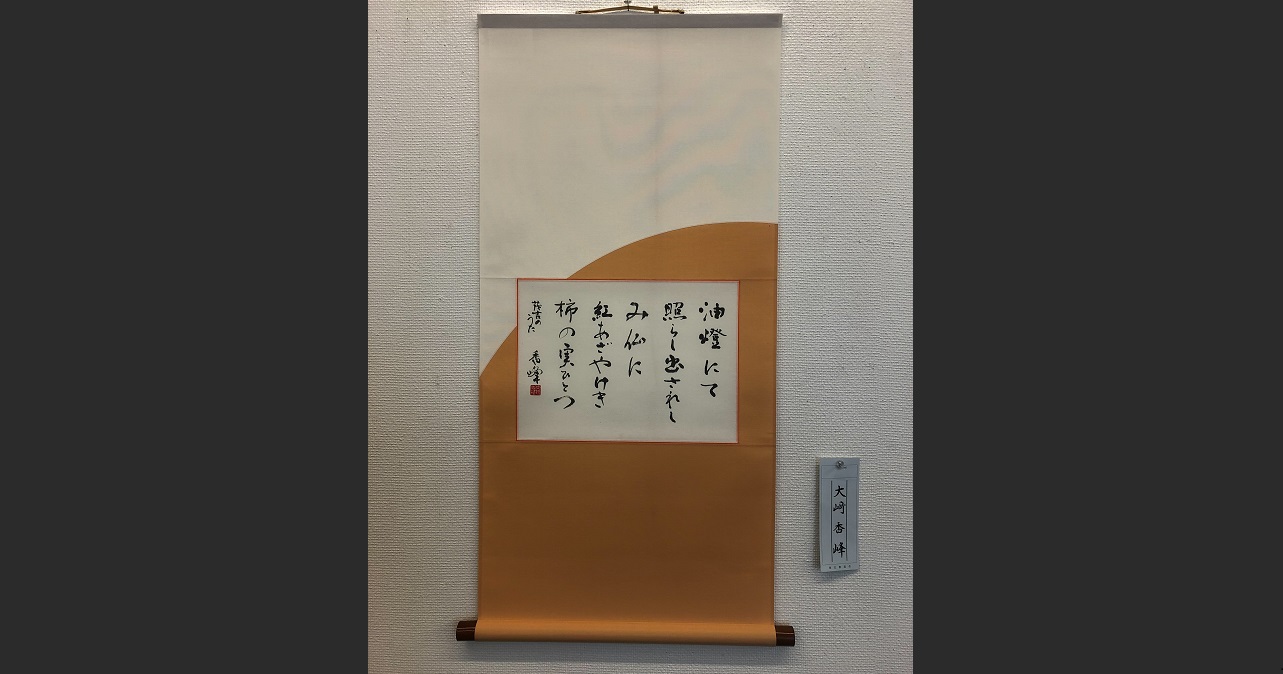 油燈にて
照らし出されし
み仏に
紅あざやけき
柿の実ひとつ
茂吉のうた
香峰
大﨑香峰